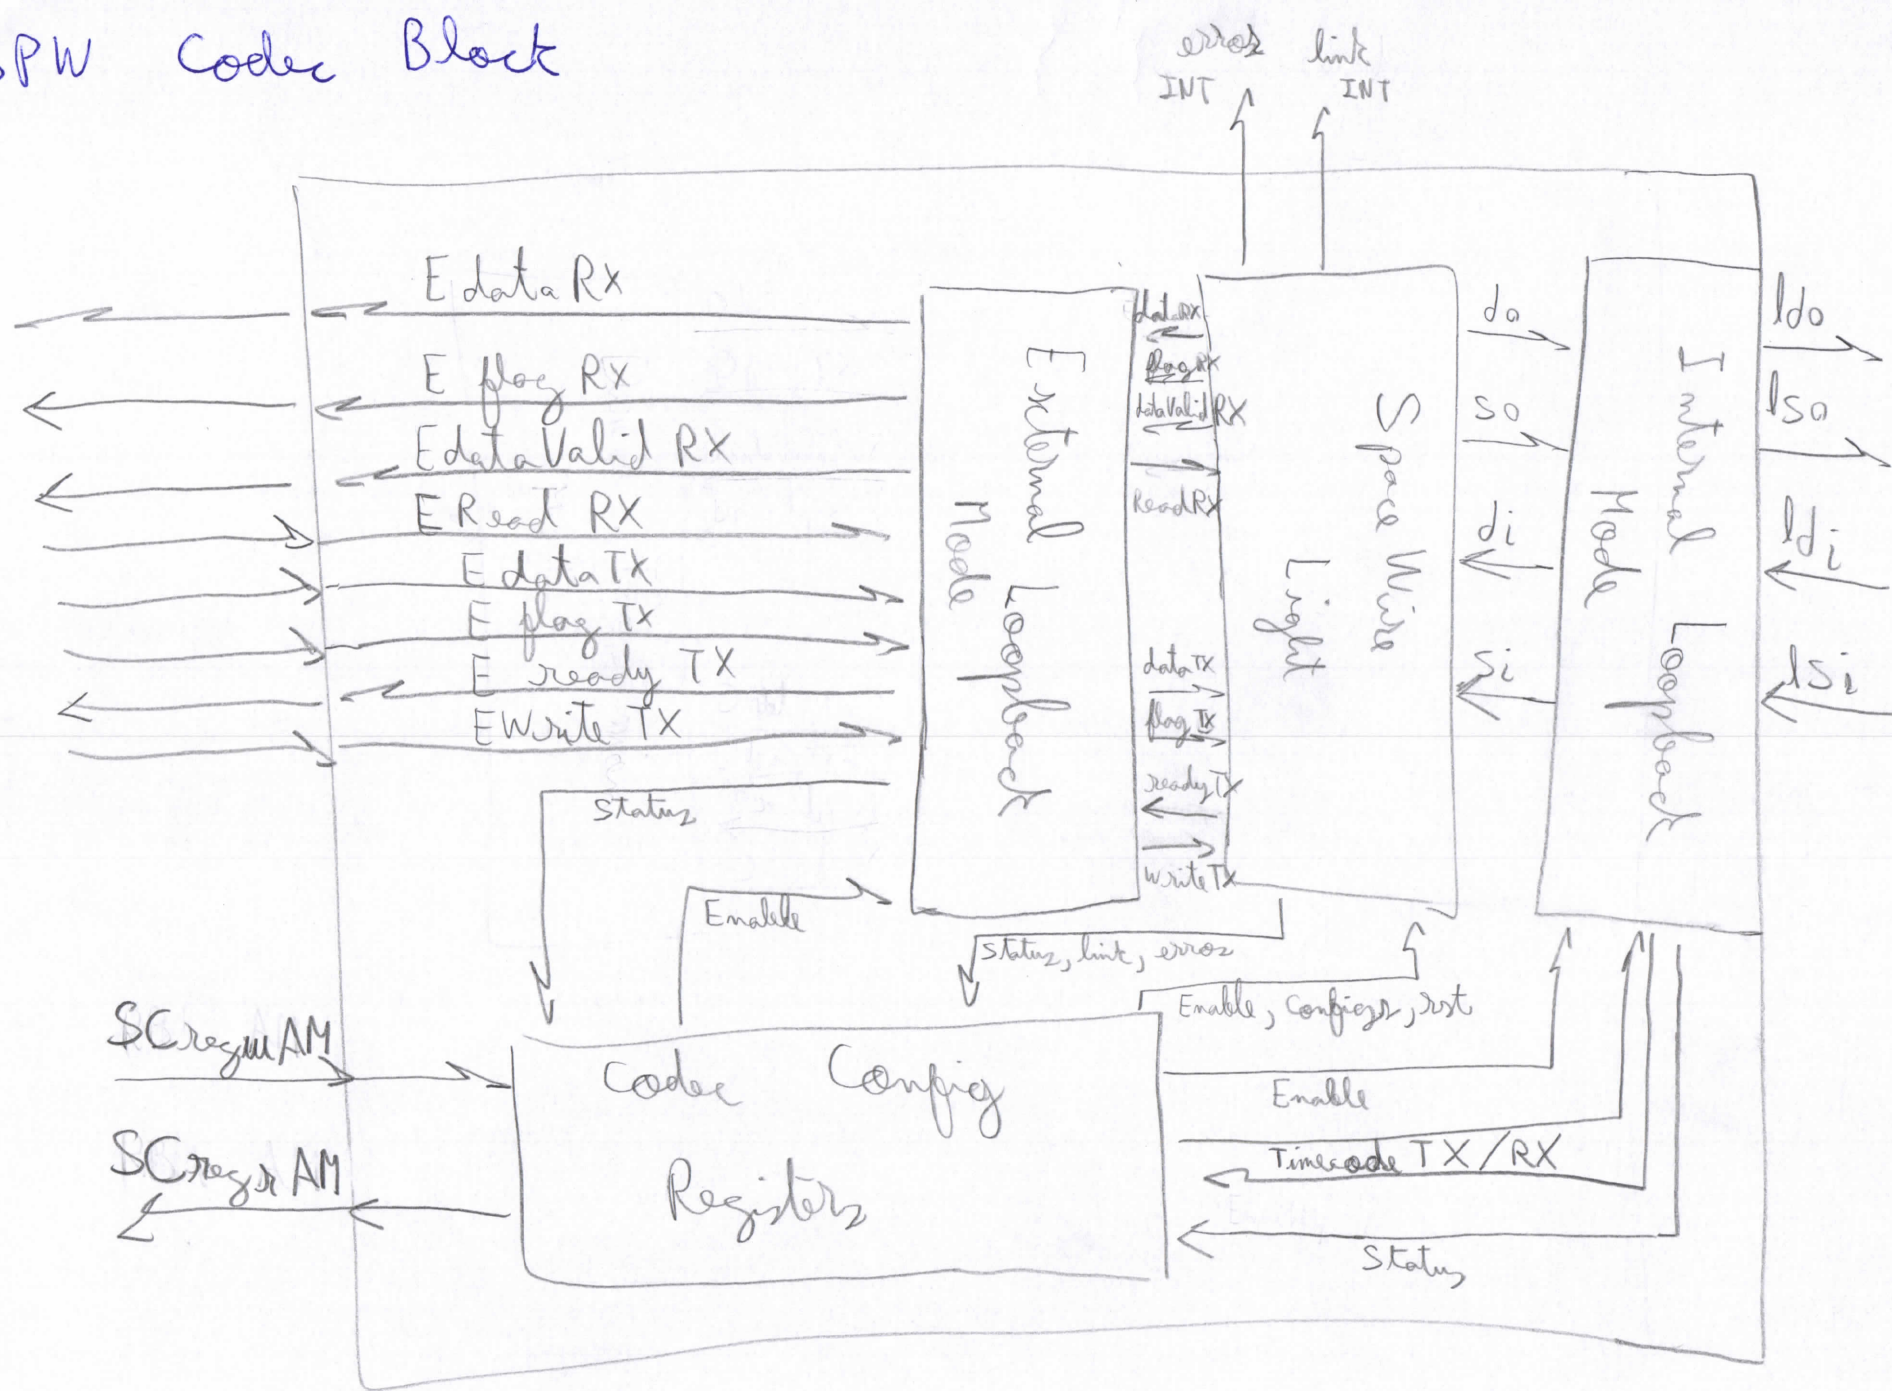 SPW Codec Block
error INT
link INT
E data RX
E flag RX
E dataValid RX
E Read RX
E data TX
E flag TX
E ready TX
E Write TX
Status
Enable
External Loopback Mode
dataRX
flagRX
dataValidRX
ReadRX
dataTX
flagTX
readyTX
WriteTX
Space Wire Light
do
so
di
si
Internal Loopback Mode
ldo
lso
ldi
lsi
Status, link, error
Enable, Configs, rst
SCregwAM
SCregrAM
Codec Config
Registers
Enable
Timecode TX/RX
Status